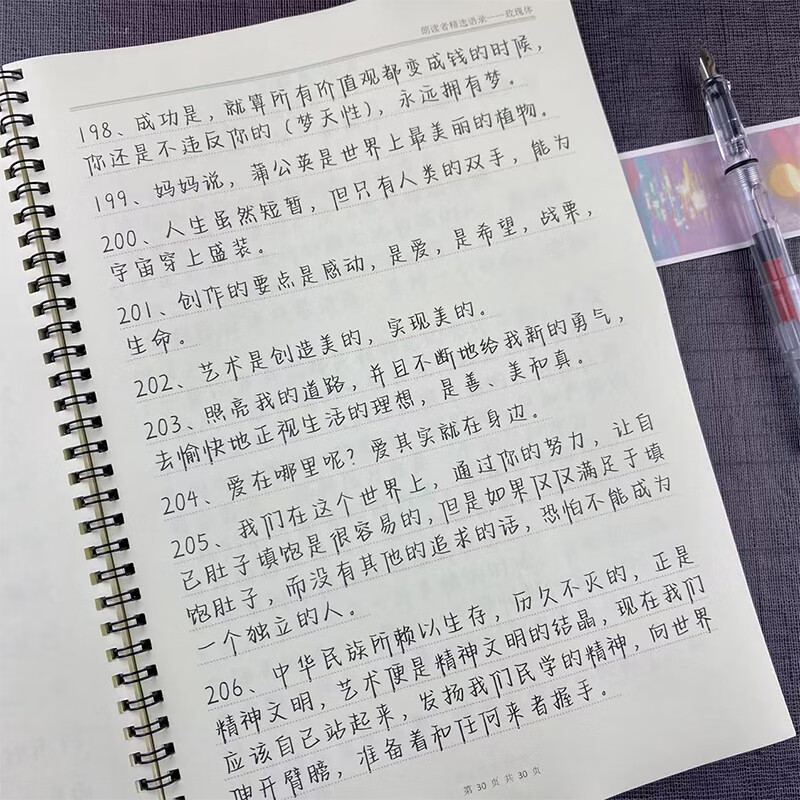 朗读者精选语录——玫瑰体
198、成功是，就算所有价值观都变成钱的时候，
你还是不违反你的（梦天性），永远拥有梦。
199、妈妈说，蒲公英是世界上最美丽的植物。
200、人生虽然短暂，但只有人类的双手，能为
宇宙穿上盛装。
201、创作的要点是感动，是爱，是希望，战栗，
生命。
202、艺术是创造美的，实现美的。
203、照亮我的道路，并且不断地给我新的勇气，
去愉快地正视生活的理想，是善、美和真。
204、爱在哪里呢？爱其实就在身边。
205、我们在这个世界上，通过你的努力，让自
己肚子填饱是很容易的，但是如果仅仅满足于填
饱肚子，而没有其他的追求的话，恐怕不能成为
一个独立的人。
206、中华民族所赖以生存，历久不灭的，正是
精神文明，艺术便是精神文明的结晶，现在我们
应该自己站起来，发扬我们民学的精神，向世界
伸开臂膀，准备着和任何来者握手。
第 30 页 共 30 页